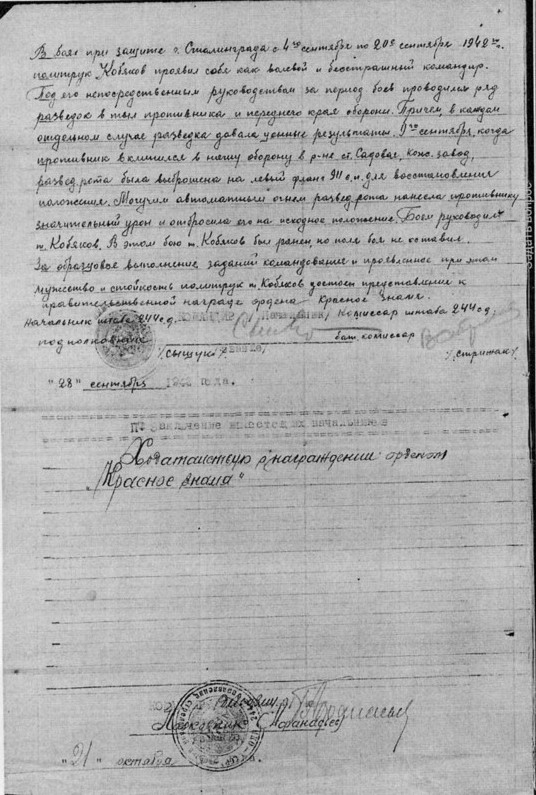 В боях при защите г. Сталинграда с 4го сентября по 20е сентября 1942 г.
политрук Кобяков проявил себя как волевой и бесстрашный командир.
Под его непосредственным руководством за период боев проводились ряд
разведок в тыл противника и переднего края обороны. Причем, в каждом
отдельном случае разведка давала ценные результаты. 9го сентября, когда
противник вклинился в нашу оборону в р-не ст. Садовая, конс. завод,
развед. рота была выброшена на левый фланг с.п. для восстановления
положения. Могучим автоматным огнем развед. рота нанесла противнику
значительный урон и отбросила его на исходное положение. Боем руководил
т. Кобяков. В этом бою т. Кобяков был ранен но поле боя не оставил.
За образцовое выполнение заданий командования и проявленное при этом
мужество и стойкость политрук т. Кобяков достоин представления к
правительственной награде ордена "Красное знамя.
Начальник штаба 244 с.д. Комиссар штаба 244 с.д.
подполковник бат. комиссар
/Сыщук/ /Стрижак/
"28" сентября 194 года.
П. Заключение вышестоящих начальников
Ходатайствую о награждении орденом
"Красное знамя"
Полковник Афанасьев
"21" октября